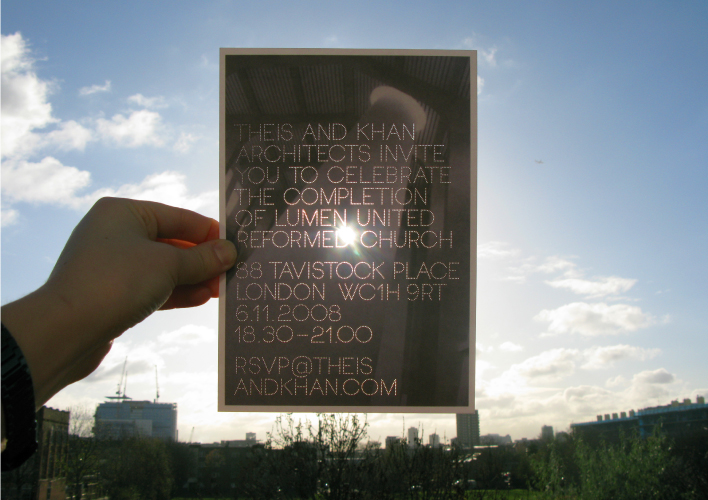 THEIS AND KHAN
ARCHITECTS INVITE
YOU TO CELEBRATE
THE COMPLETION
OF LUMEN UNITED
REFORMED CHURCH
88 TAVISTOCK PLACE
LONDON WC1H 9RT
6.11.2008
18.30-21.00
RSVP@THEIS
ANDKHAN.COM